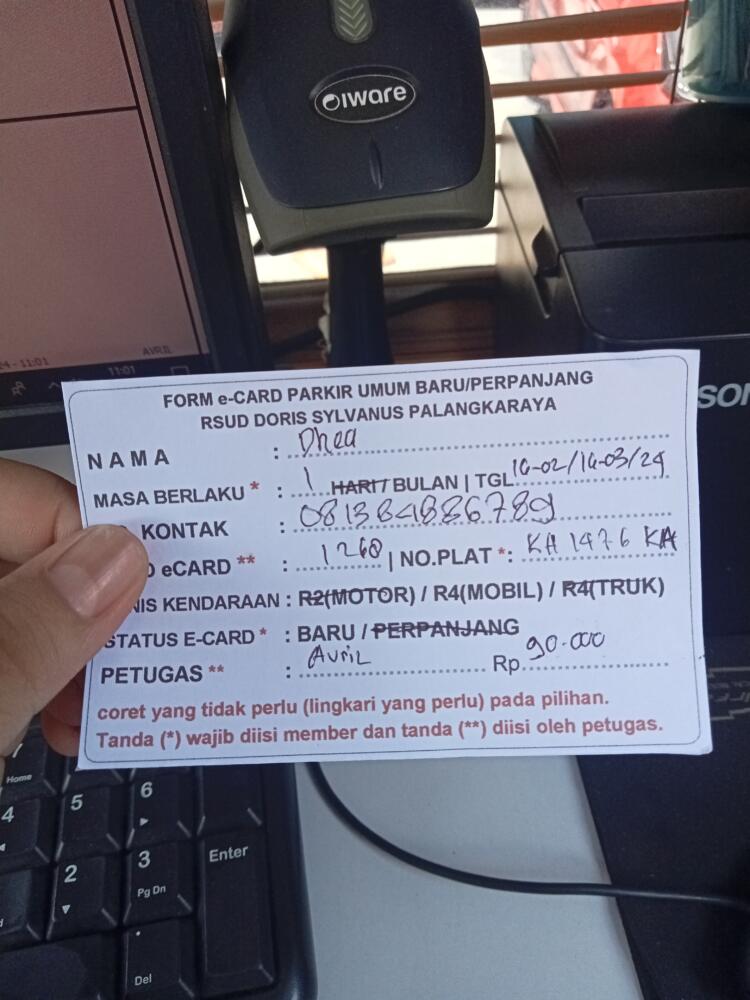 iware
24 - 11:01
AVRIL
11:01
FORM e-CARD PARKIR UMUM BARU/PERPANJANG
RSUD DORIS SYLVANUS PALANGKARAYA
NAMA : Dhea
MASA BERLAKU * : 1 HARI / BULAN | TGL 16-02/16-03/24
KONTAK : 081384886789
eCARD ** : 1260 | NO.PLAT *: KH 1476 KA
NIS KENDARAAN : R2(MOTOR) / R4(MOBIL) / R4(TRUK)
STATUS E-CARD * : BARU / PERPANJANG
PETUGAS ** : Avril Rp 90.000
coret yang tidak perlu (lingkari yang perlu) pada pilihan.
Tanda (*) wajib diisi member dan tanda (**) diisi oleh petugas.
7 Home
4
5
6
2
3 Pg Dn
Enter
Del